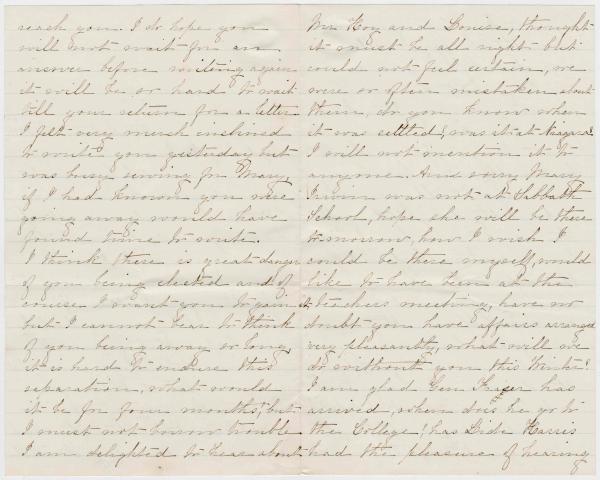 reach you. I do hope you
will not wait for an
answer before writing again
it will be so hard to wait
till your return for a letter
I felt very much inclined
to write you yesterday but
was busy sewing for Mary,
if I had known you were
going away would have
found time to write.
I think there is great danger
of your being elected and of
course I want you to gain it
but I cannot bear to think
of you being away so long,
it is hard to endure this
separation, what would
it be for four months, but
I must not borrow trouble
I am delighted to hear about
Mr Hoy and Louise, thought
it must be all right but
could not feel certain, we
were so often mistaken about
them, do you know when
it was settled? was it at Niagara?
I will not mention it to
anyone. And sorry Mary
Irwin was not at Sabbath
School, hope she will be there
to-morrow, how I wish I
could be there myself, would
like to have been at the
teachers meeting, have no
doubt you have affairs arranged
very pleasantly, what will we
do without you this Winter?
I am glad Gen Fraser has
arrived, when does he go to
the College? has Lide Harris
had the pleasure of hearing